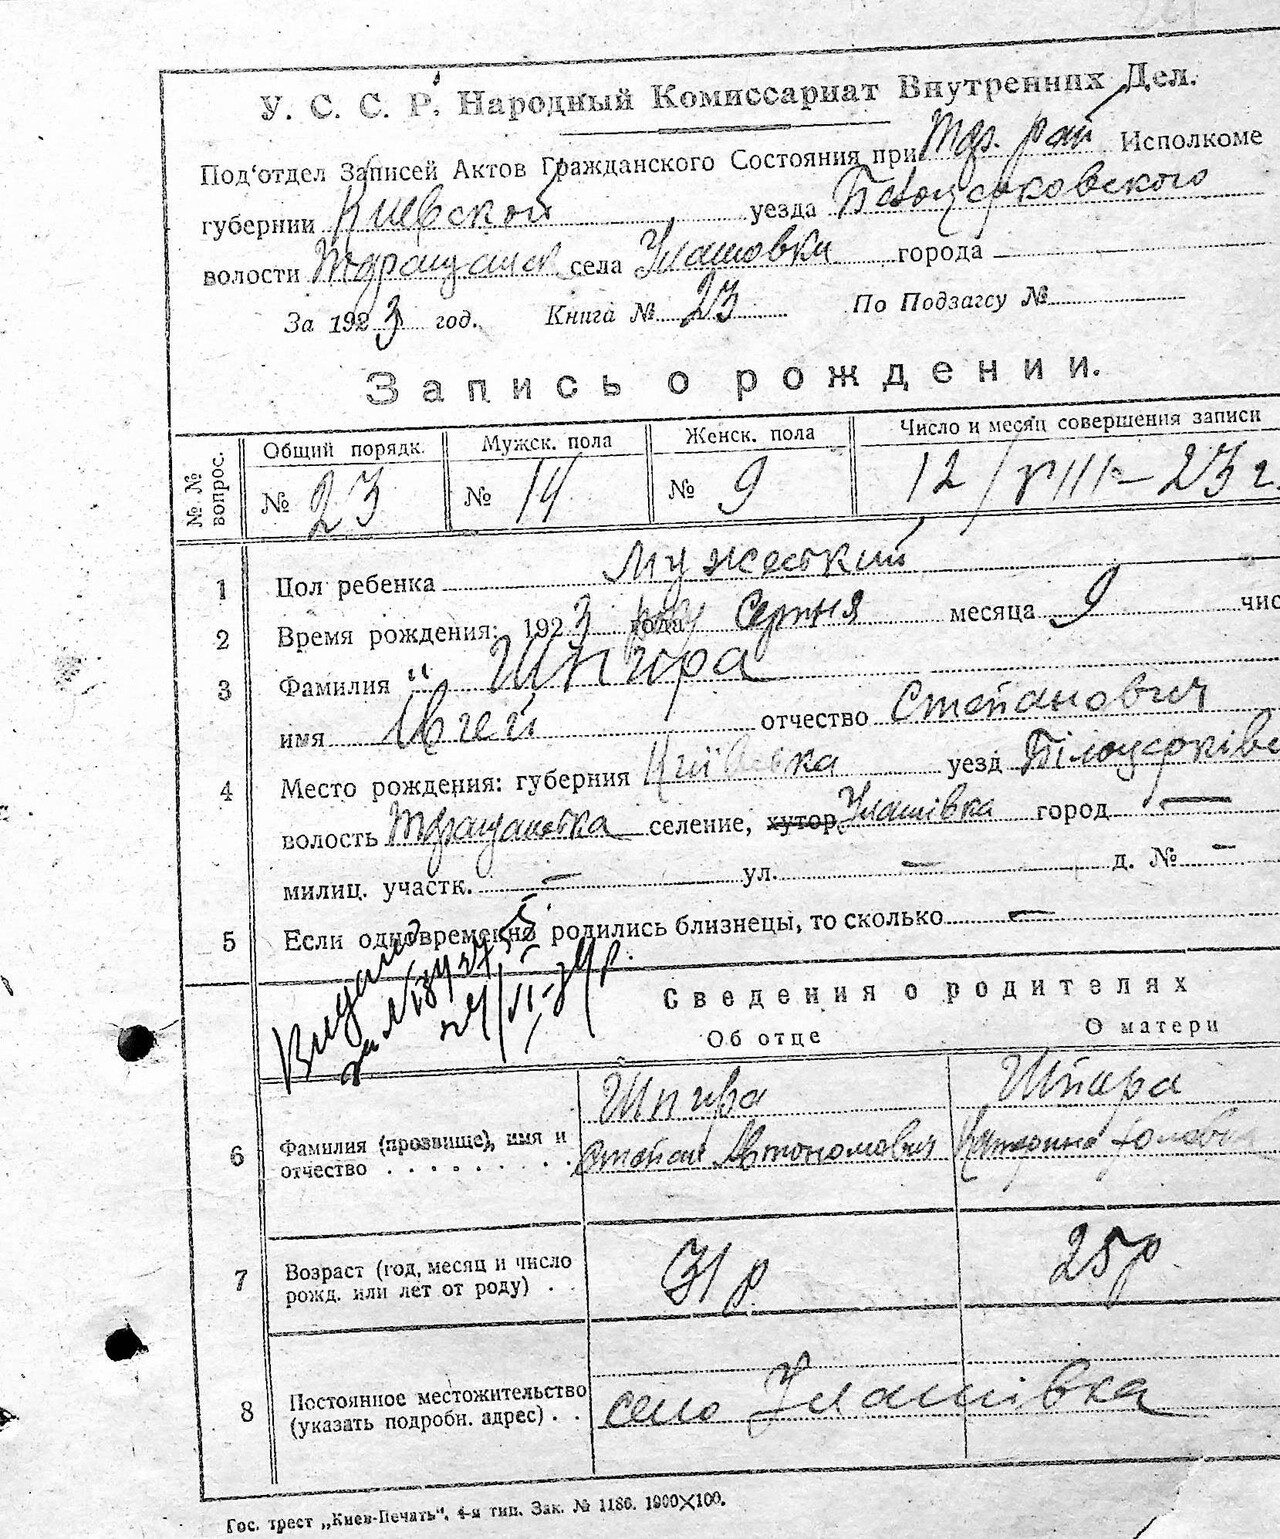 У. С. С. Р. Народный Комиссариат Внутренних Дел.
Под'отдел Записей Актов Гражданского Состояния при Тар. рай Исполкоме
губернии Киевской уезда Белоцерковского
волости Таращанск села Улашовки города
За 1923 год. Книга № 23 По Подзагсу №
Запись о рождении.
№ № вопрос. Общий порядк. Мужск. пола Женск. пола Число и месяц совершения записи
№ 23 № 14 № 9 12/VIII-23 г.
1 Пол ребенка Мужеский
2 Время рождения: 1923 года року Серпня месяца 9 чис
3 Фамилия " Шпира
имя отчество Степанович
4 Место рождения: губерния Київська уезд Білоцерківс
волость Таращанська селение, хутор Улашівка город —
милиц. участк. — ул. — д. № —
5 Если одновременно родились близнецы, то сколько —
Видано
Сведения о родителях
Об отце О матери
Шпира Шпара
6 Фамилия (прозвище), имя и отчество Степан Автономович Катерина
7 Возраст (год, месяц и число рожд. или лет от роду) 31 р. 25 р.
8 Постоянное местожительство (указать подробн. адрес) село Улашівка
Гос. трест „Киев-Печать". 4-я тип. Зак. № 1186. 1900×100.